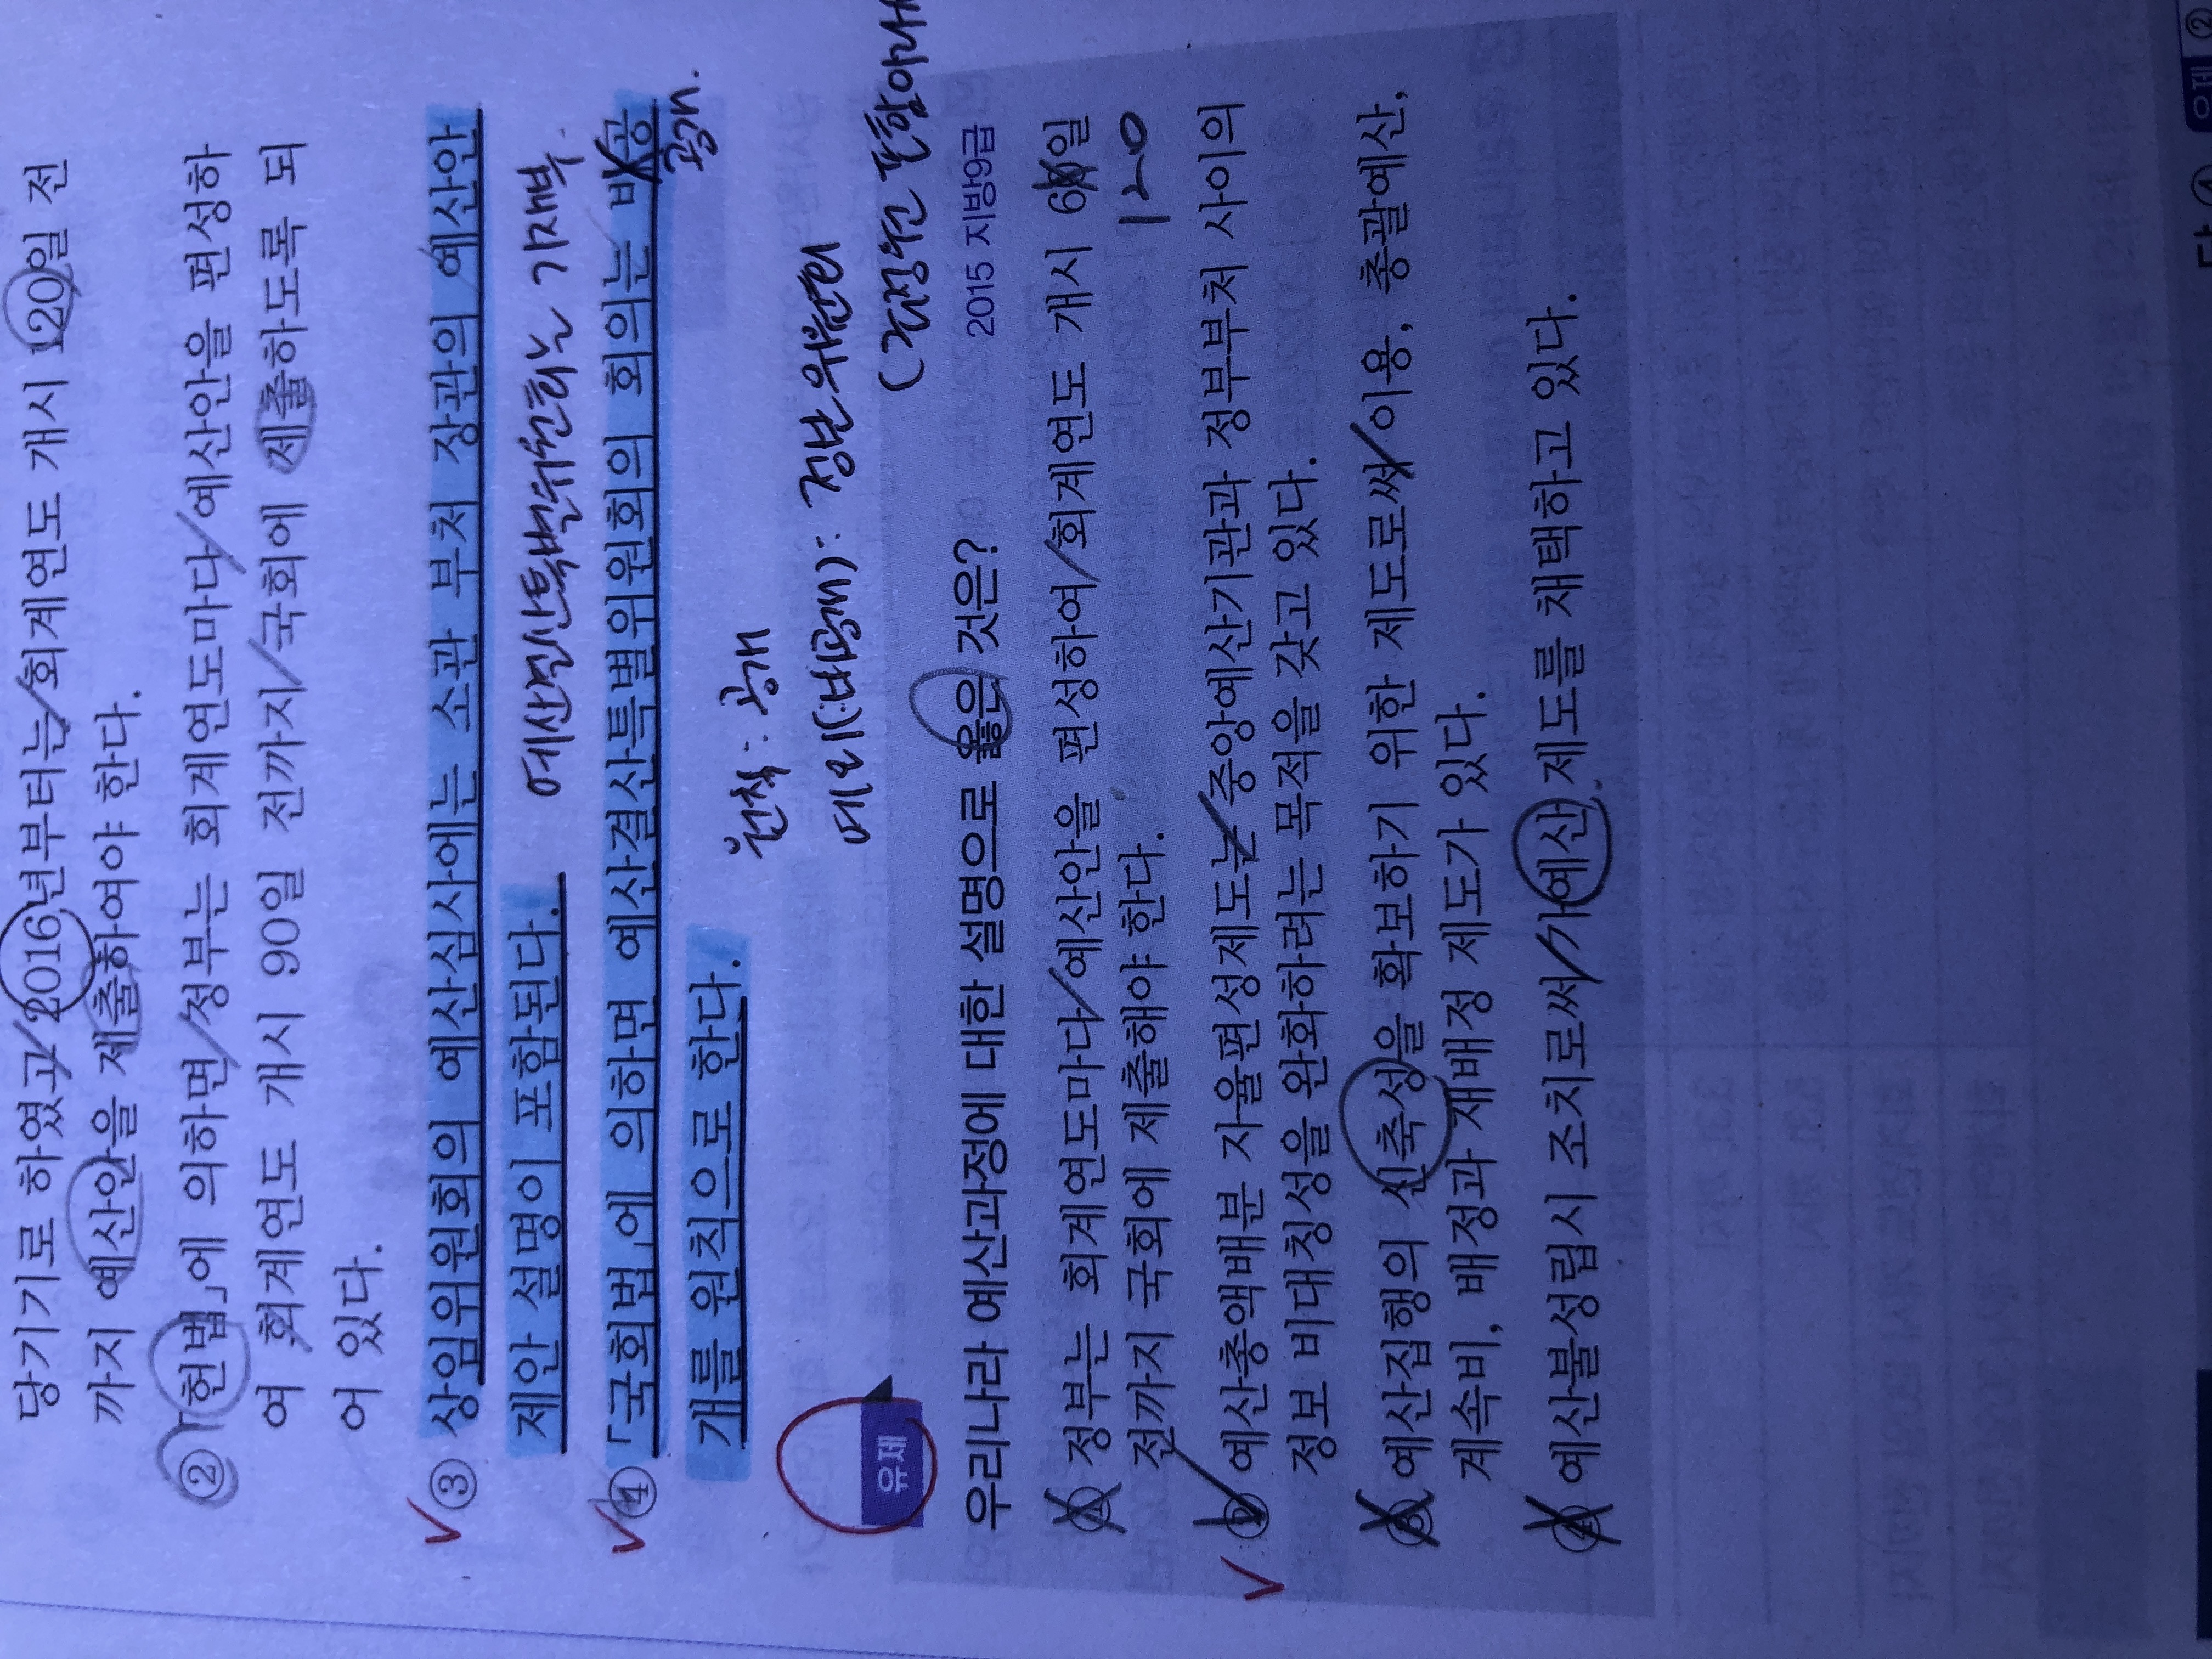 당기기로 하였고 2016년부터는 회계연도 개시 120일 전
까지 예산안을 제출하여야 한다.
② 「헌법」에 의하면 정부는 회계연도마다 예산안을 편성하
여 회계연도 개시 90일 전까지 국회에 제출하도록 되
어 있다.
③ 상임위원회의 예산심사에는 소관 부처 장관의 예산안
제안 설명이 포함된다. 예산결산특별위원회는 기재부
④ 「국회법」에 의하면 예산결산특별위원회의 회의는 비공
공개.
개를 원칙으로 한다.
원칙: 공개
예외(비공개): 정보위원회
(국정원 포함
유제
2015 지방9급
우리나라 예산과정에 대한 설명으로 옳은 것은?
① 정부는 회계연도마다 예산안을 편성하여 회계연도 개시 60일
120
전까지 국회에 제출해야 한다.
② 예산총액배분 자율편성제도는 중앙예산기관과 정부부처 사이의
정보 비대칭성을 완화하려는 목적을 갖고 있다.
③ 예산집행의 신축성을 확보하기 위한 제도로써 이용, 총괄예산,
계속비, 배정과 재배정 제도가 있다.
④ 예산불성립시 조치로써 가예산 제도를 채택하고 있다.
답 ④ 유제 ②